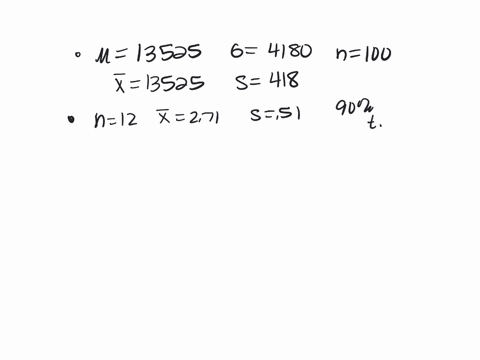 • μ = 13525 σ = 4180 n = 100
x̄ = 13525 s = 418
• n = 12 x̄ = 2.71 s = .51 90%
t.